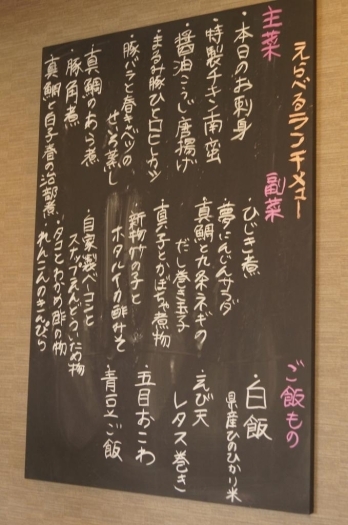 えらべるランチメニュー
主菜
・本日のお刺身
・特製チキン南蛮
・醤油こうじ唐揚げ
・まるみ豚ひとロヒレカツ
・豚バラと春キャベツの
せいろ蒸し
・真鯛のあら煮
・豚角煮
・真鯛と白子春の治部煮
副菜
・ひじき煮
・夢にんじんサラダ
・真鯛と九条ネギの
だし巻き玉子
・真子とかぼちゃ煮物
・新物竹の子と
ホタルイカ酢みそ
・自家製ベーコンと
スナップえんどういため物
・タコとわかめ酢の物
・れんこんのきんぴら
ご飯もの
・白飯
県産ひのひかり米
・えび天
レタス巻き
・五目おこわ
・青豆ご飯